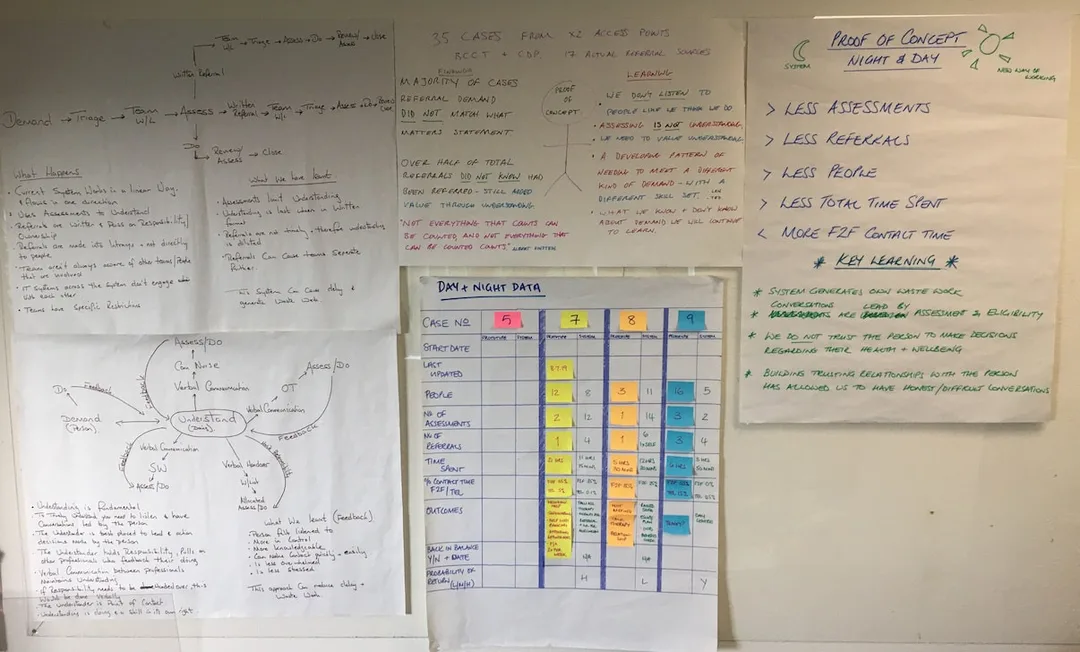 Team W/L → Triage → Assess → Do → Review/Assess → Close
Written Referral
Demand → Triage → Team W/L → Assess → Written Referral → Team W/L → Triage → Assess → Do → Review Close
Do
Review/Assess → Close
What Happens
• Current System Works in a linear way.
in one direction
• Uses Assessments to Understand
• Referrals are Written & Pass on Responsibility/
Ownership
• Referrals are made into and not directly
to people
• Teams aren't always aware of other teams/
that are involved
• IT Systems across the System don't engage
with each other
• Teams have Specific Restrictions
What we have learnt
• Assessments limit Understanding
• Understanding is lost when in Written
format
• Referrals are not timely, therefore understanding
is diluted
• Referrals can cause teams Separate
further.
This System Can Cause delay &
generate Waste Work.
35 CASES FROM X2 ACCESS POINTS
BCCT + CDP. 17 ACTUAL REFERRAL SOURCES
FINDINGS
MAJORITY OF CASES
REFERRAL DEMAND
DID NOT MATCH WHAT
MATTERS STATEMENT
OVER HALF OF TOTAL
REFERRALS DID NOT KNOW HAD
BEEN REFERRED - STILL ADDED
VALUE THROUGH UNDERSTANDING
"NOT EVERYTHING THAT COUNTS CAN
BE COUNTED, AND NOT EVERYTHING THAT
CAN BE COUNTED COUNTS" ALBERT EINSTEIN
PROOF
OF
CONCEPT
LEARNING
• WE DON'T LISTEN TO
PEOPLE LIKE WE THINK WE DO
• ASSESSING IS NOT UNDERSTANDING
• WE NEED TO VALUE UNDERSTANDING
• A DEVELOPING PATTERN OF
NEEDING TO MEET A DIFFERENT
KIND OF DEMAND - WITH A
DIFFERENT SKILL SET.
• WHAT WE KNOW + DON'T KNOW
ABOUT DEMAND WE WILL CONTINUE
TO LEARN.
PROOF OF CONCEPT
NIGHT & DAY
SYSTEM
NEW WAY OF
WORKING
> LESS ASSESSMENTS
> LESS REFERRALS
> LESS PEOPLE
> LESS TOTAL TIME SPENT
< MORE F2F CONTACT TIME
* KEY LEARNING *
* SYSTEM GENERATES OWN WASTE WORK
* CONVERSATIONS ARE LEAD BY ASSESSMENT & ELIGIBILITY
* WE DO NOT TRUST THE PERSON TO MAKE DECISIONS
REGARDING THEIR HEALTH + WELLBEING
* BUILDING TRUSTING RELATIONSHIPS WITH THE PERSON
HAS ALLOWED US TO HAVE HONEST/DIFFICULT CONVERSATIONS
Assess/Do
Com Nurse
Verbal Communication
Feedback
Do
Feedback
Demand
(Person)
Understand
OT
Verbal Communication
Assess/Do
Feedback
Verbal Communication
SW
Feedback
Assess/Do
Verbal Handover
W/L
Allocated
Assess/Do
• Understanding is fundamental
• To Truly understand you need to listen & have
Conversations led by the person
• The Understander is best placed to lead & action
decisions made by the person
• The Understander holds Responsibility, Pulls on
other professionals who feedback their doing
• Verbal Communication between professionals
Maintains Understanding
• If Responsibility needs to be handed over, this
would be done verbally
• The Understander is Point of Contact
• Understanding is doing & a Skill in its own right
What We learnt (Feedback)
• Person felt listened to
• More in Control
• More Knowledgeable
• Can make Contact quickly & easily
• Is less overwhelmed
• Is less Stressed
This approach Can reduce delay &
Waste Work.
DAY + NIGHT DATA
CASE NO 5 7 8 9
PROTOTYPE SYSTEM PROTOTYPE SYSTEM PROTOTYPE SYSTEM PROTOTYPE SYSTEM
START DATE
LAST
UPDATED
PEOPLE 12 8 3 11 10 5
NO OF
ASSESSMENTS 2 12 1 14 3 2
NO OF
REFERRALS 1 4 1 6 3 4
TIME
SPENT
% CONTACT TIME
F2F/TEL
OUTCOMES
BACK IN BALANCE
Y/N + DATE N/A N/A
PROBABILITY OF
RETURN (L/M/H) H L Y